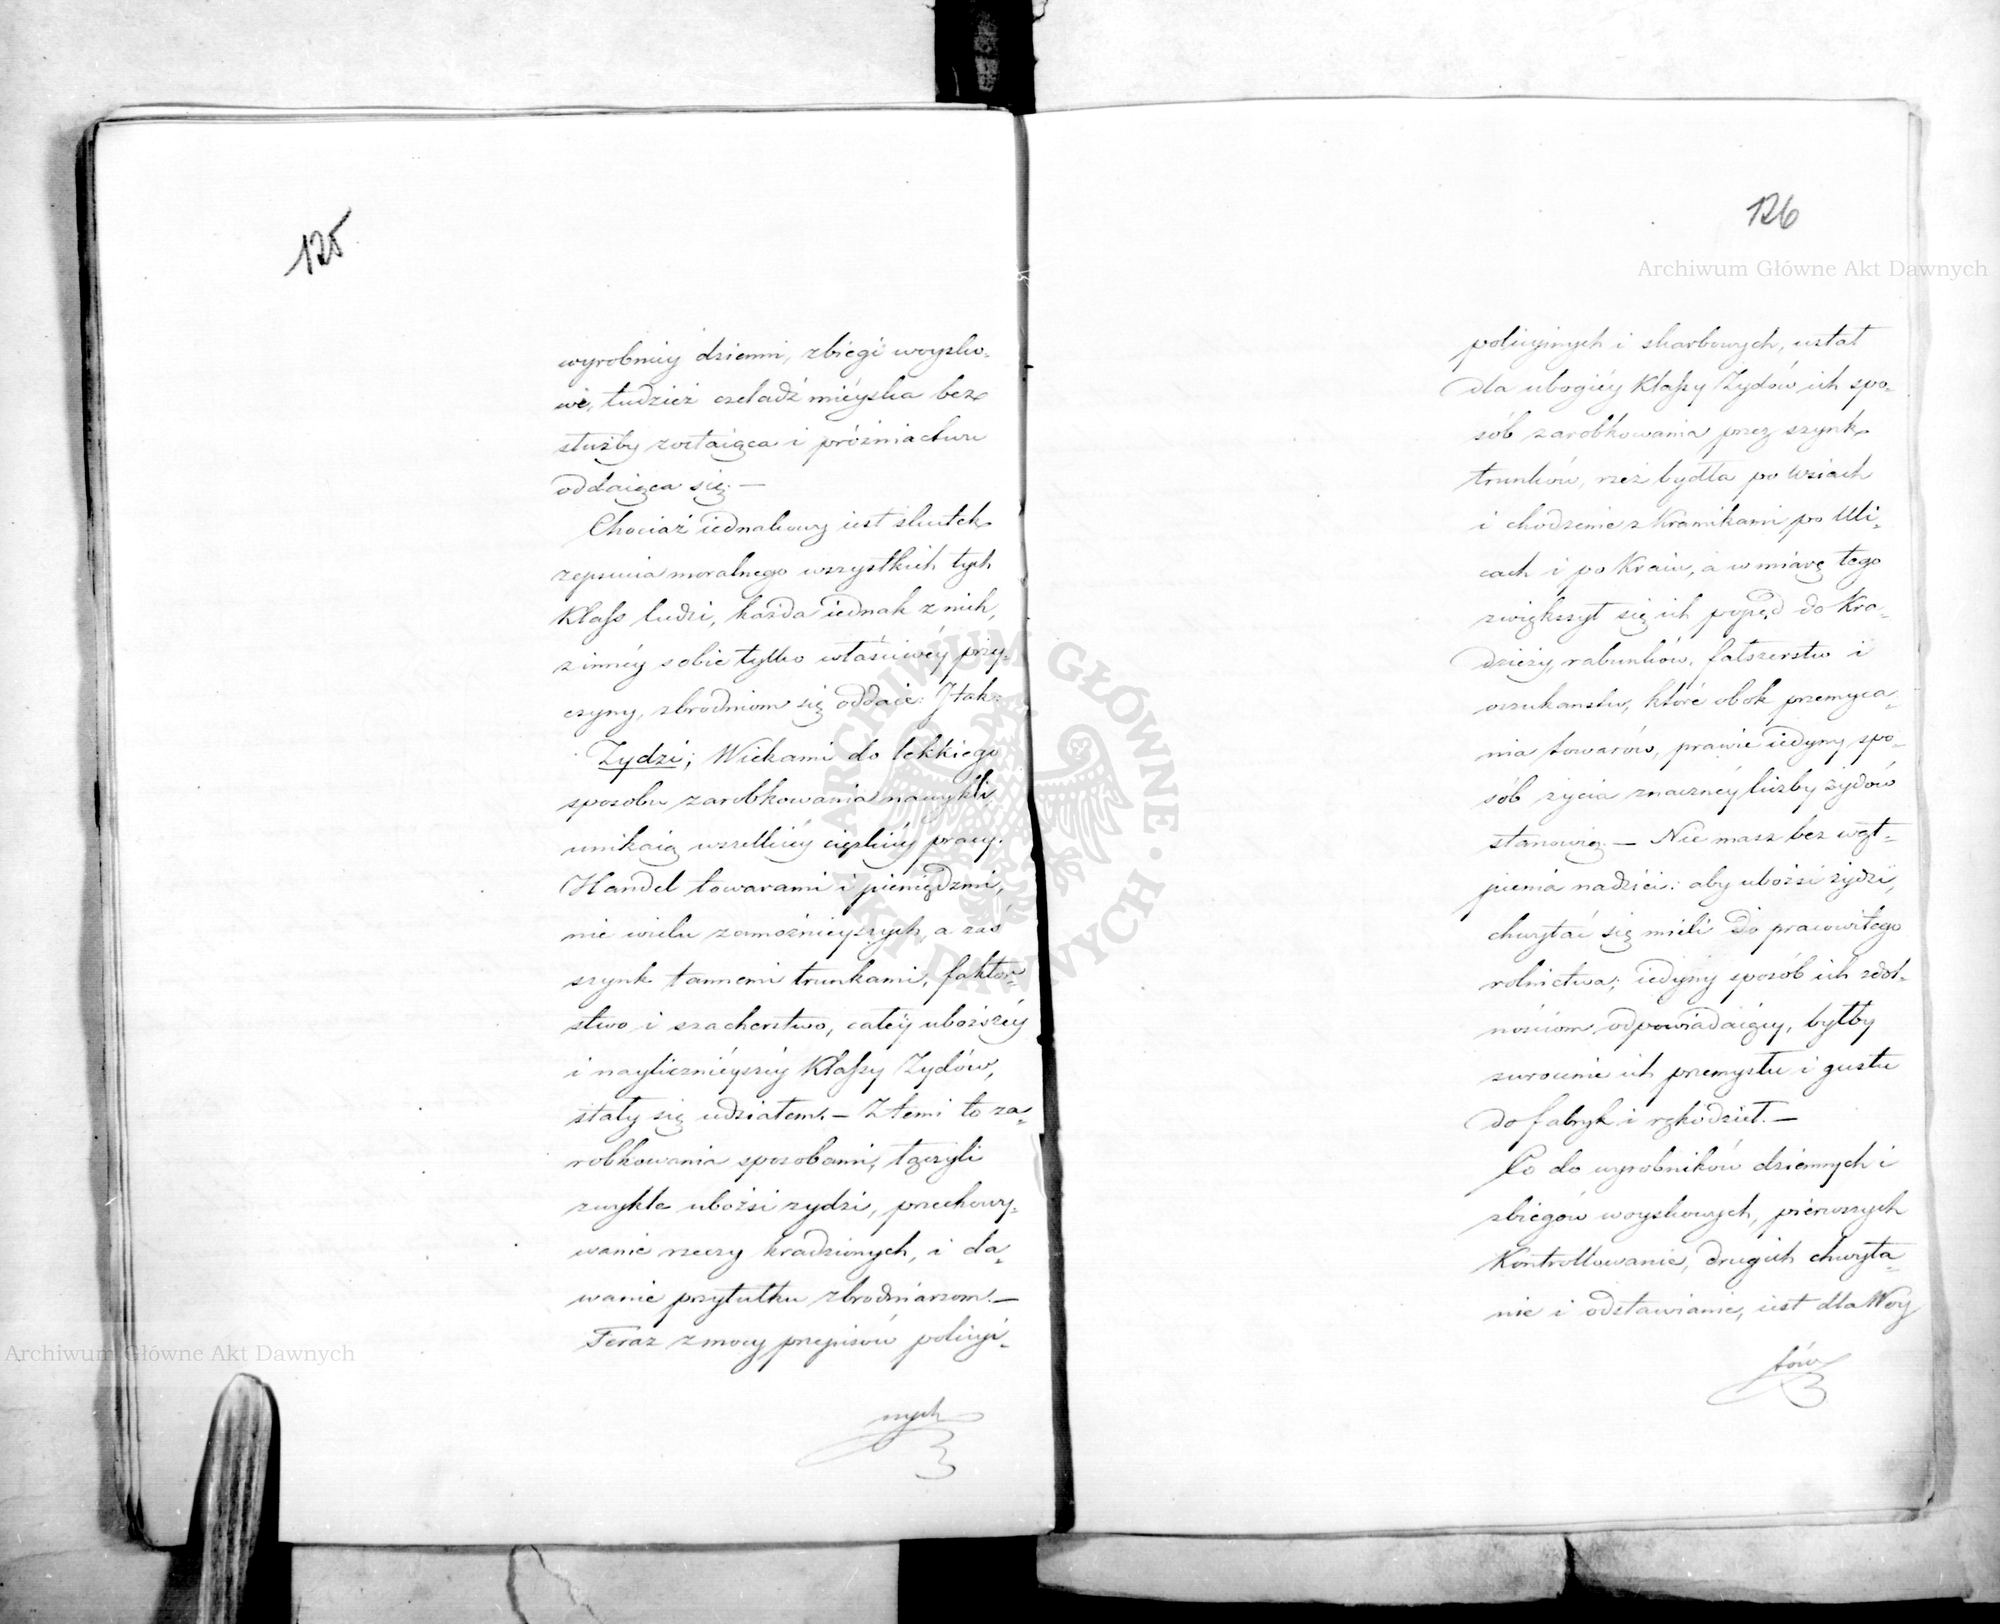 125
wyrobnicy dzienni, zbiegi woysko-
wi, tudzież czeladź mieyska bez
służby zostaiąca i próżniactwu
oddaiąca się. —
Chociaż iednakowy iest skutek
zepsucia moralnego wszystkich tych
Klass ludzi, każda iednak z nich,
z innéy sobie tylko właściwéy przy-
czyny, zbrodniom się oddaie: I tak:
Żydzi; Wiekami do lekkiego
sposobu zarobkowania nawykli
unikaią wszelkiéy ciężkiéy pracy.
Handel towarami i pieniędzmi,
nie wielu zamożnieyszych, a zaś
szynk tannemi trunkami, faktor-
stwo i szacherstwo, całéy uboższéy
i naylicznieyszéy Klassy Żydów,
stały się udziałem. — Z temi to za-
robkowania sposobami, łączyli
zwykle ubożsi żydzi, przechowy-
wanie rzeczy kradzionych, i da-
wanie przytułku zbrodniarzom. —
Teraz z mocy przepisów policyi-
nych
126
Archiwum Główne Akt Dawnych
policyinych i skarbowych, ustał
dla ubogiéy Klassy Żydów ich spo-
sób zarobkowania przez szynk
trunków, rzeź bydła po Wsiach
i chodzenie z Kramikami po Uli-
cach i po Kraiu, a w miarę tego
zwiększył się ich popęd do Kra-
dzieży, rabunków, fałszerstw i
oszukanstw, które obok przemyca-
nia towarów, prawie iedyny spo-
sób życia znacznéy liczby żydów
stanowią. — Nie masz bez wąt-
pienia nadziei: aby ubożsi żydzi,
chwytać się mieli do pracowitego
rolnictwa; iedyny sposób ich zdol-
nościom odpowiadaiący, byłby
zwrócenie ich przemysłu i gustu
do fabryk i rękodzieł. —
Co do wyrobników dziennych i
zbiegów woyskowych, pierwszych
Kontrollowanie, drugich chwyta-
nie i odstawianie, iest dla Woy
tów
Archiwum Główne Akt Dawnych
ARCHIWUM GŁÓWNE AKT DAWNYCH